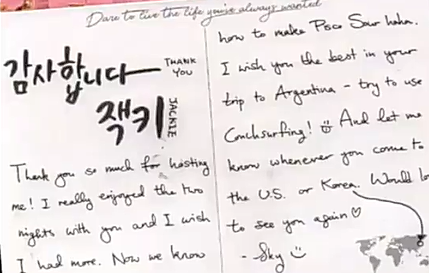 Dare to live the life you've always wanted
감사합니다
THANK
YOU
잭키
JACKIE
Thank you so much for hosting
me! I really enjoyed the two
nights with you and I wish
I had more. Now we know
how to make Pisco Sour haha.
I wish you the best in your
trip to Argentina - try to use
Couchsurfing! And let me
know whenever you come to
the U.S. or Korea. Would lo
to see you again
- Sky